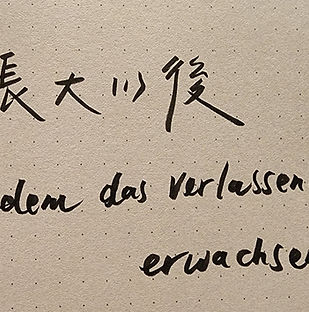 長大以後
dem das verlassen
erwachsen